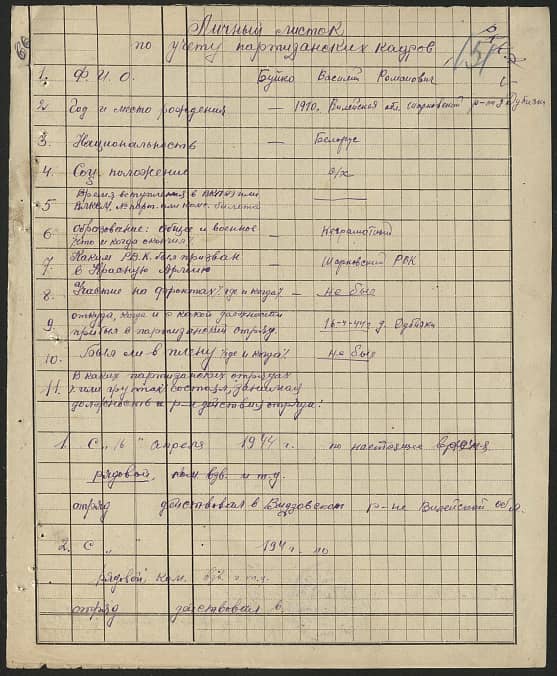 Личный листок
по учету партизанских кадров
66
151
1. Ф. И. О. Буйко Василий Романович
2. Год и место рождения — 1910. Вилейская обл. Шарковский р-н д Дубинки
3. Национальность — белорус
4. Соц положение с/х
Время вступления в ВКП(б) или
5 ВЛКСМ, № парт. или комс. билета
6 Образование: общее и военное — Неграмотный
что и когда окончил
7 Каким Р.В.К. был призван — Шарковский РВК
в Красную Армию
8. Участие на фронтах? где и когда? — не был
9 откуда, когда и с какой должности
прибыл в партизанский отряд. 16-4-44 г д.
10. Был ли в плену где и когда? не был
11. В каких партизанских отрядах
и или группах состоял, занимал
должность и р-н действия отряда:
1. С „16" апреля 1944 г. по настоящее время
рядовой, ком взв. и т.д.
отряд действовал в Видзовском р-не Вилейской обл.
2. С „ " 194 г. по
рядовой, ком. взв. и т.д.
отряд действовал в